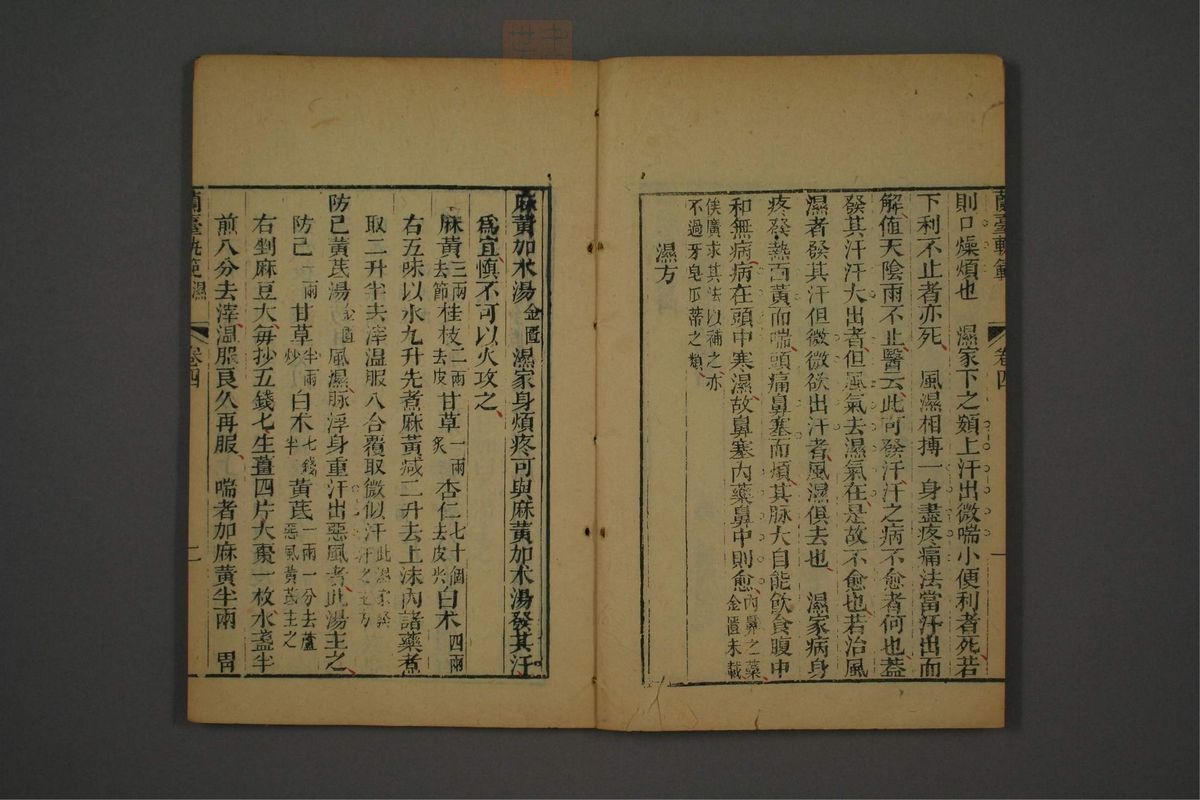 蘭臺軌範 卷四 一
則口燥煩也 濕家下之額上汗出微喘小便利者死若
下利不止者亦死 風濕相搏一身盡疼痛法當汗出而
解值天陰雨不止醫云此可發汗汗之病不愈者何也蓋
發其汗汗大出者但風氣去濕氣在是故不愈也若治風
濕者發其汗但微微欲出汗者風濕俱去也 濕家病身
疼發熱面黃而喘頭痛鼻塞而煩其脉大自能飲食腹中
和無病病在頭中寒濕故鼻塞內藥鼻中則愈內鼻之藥金匱未載
俟廣求其法以補之亦不過牙皂瓜蒂之類
濕方
麻黃加朮湯金匱濕家身煩疼可與麻黃加朮湯發其汗
爲宜慎不可以火攻之
麻黃三兩去節桂枝二兩去皮甘草一兩炙杏仁七十個去皮尖白朮四兩
右五味以水九升先煮麻黃減二升去上沫內諸藥煮
取二升半去滓溫服八合覆取微似汗此濕家發汗之主方
防己黃芪湯金匱風濕脉浮身重汗出惡風者此湯主之
防己一兩甘草半兩炒白朮七錢半黃芪一兩一分去蘆惡風黃芪主之
右剉麻豆大每抄五錢匕生薑四片大棗一枚水盞半
煎八分去滓溫服良久再服 喘者加麻黃半兩 胃
蘭臺軌範 濕 卷四 二